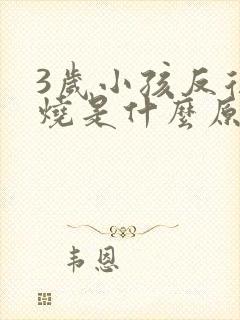 3歲小孩反復
燒是什麼原
韦恩